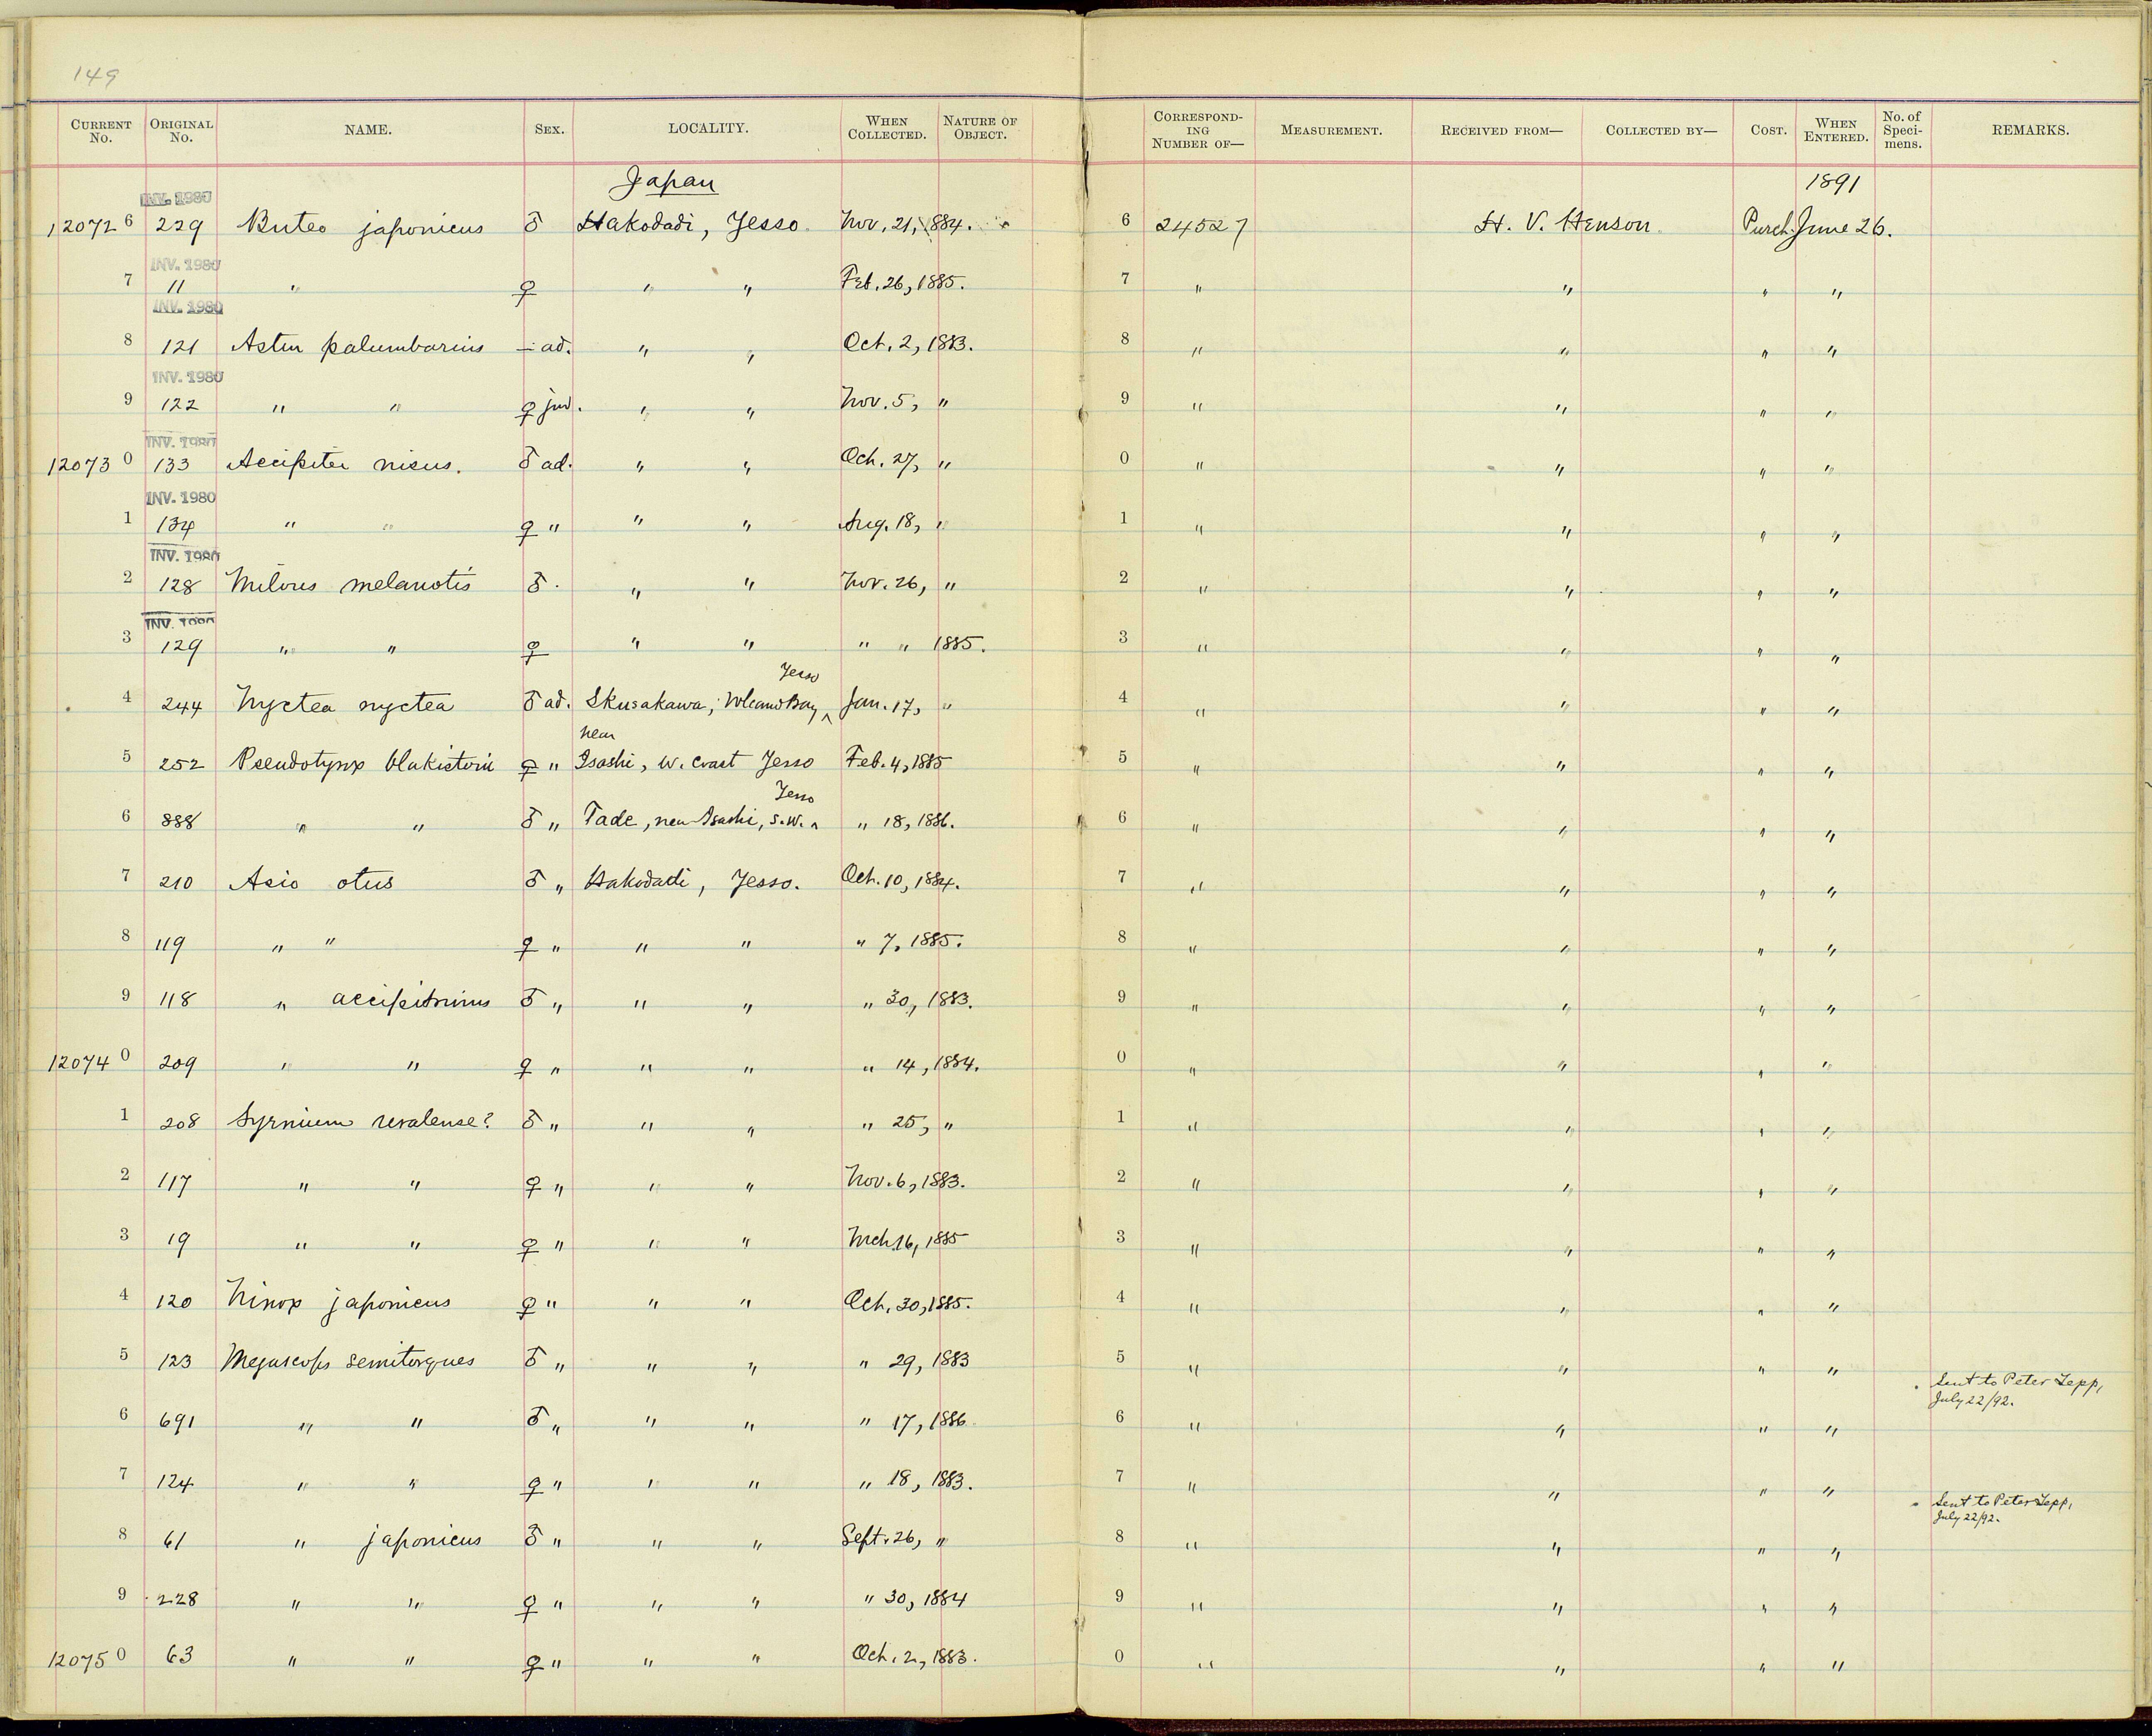 149
CURRENT No. ORIGINAL No. NAME. SEX. LOCALITY. WHEN COLLECTED. NATURE OF OBJECT. CORRESPONDING NUMBER OF— MEASUREMENT. RECEIVED FROM— COLLECTED BY— COST. WHEN ENTERED. No. of Specimens. REMARKS.
Japan 1891
INV. 1980
12072 6 229 Buteo japonicus ♂ Hakodadi, Jesso. Nov. 21, 1884. 6 24527 H. V. Henson Purch. June 26.
INV. 1980
7 11 " ♀ " " Feb. 26, 1885. 7 " " " "
INV. 1980
8 121 Astur palumbarius — ad. " " Oct. 2, 1883. 8 " " " "
INV. 1980
9 122 " " ♀ juv. " " Nov. 5, " 9 " " " "
INV. 1980
12073 0 133 Accipiter nisus. ♂ ad. " " Oct. 27, " 0 " " " "
INV. 1980
1 134 " " ♀ " " " Aug. 18, " 1 " " " "
INV. 1980
2 128 Milvus melanotis ♂. " " Nov. 26, " 2 " " " "
INV. 1980
3 129 " " ♀ " " " " 1885. 3 " " " "
4 244 Nyctea nyctea ♂ ad. Skusakawa, Volcano Bay, ^ Jesso Jan. 17, " 4 " " " "
5 252 Pseudotynx blakistoni ♀ " near Isashi, W. coast Jesso Feb. 4, 1885 5 " " " "
6 888 " " ♂ " Tade, near Isashi, S.W. ^ Jesso " 18, 1886. 6 " " " "
7 210 Asio otus ♂ " Hakodadi, Jesso. Oct. 10, 1884. 7 " " " "
8 119 " " ♀ " " " " 7, 1885. 8 " " " "
9 118 " accipitrinus ♂ " " " " 30, 1883. 9 " " " "
12074 0 209 " " ♀ " " " " 14, 1884. 0 " " " "
1 208 Syrnium uralense? ♂ " " " " 25, " 1 " " " "
2 117 " " ♀ " " " Nov. 6, 1883. 2 " " " "
3 19 " " ♀ " " " Mch 16, 1885 3 " " " "
4 120 Ninox japonicus ♀ " " " Oct. 30, 1885. 4 " " " "
5 123 Megascops semitorques ♂ " " " " 29, 1883 5 " " " "
Sent to Peter Lepp,
July 22/92.
6 691 " " ♂ " " " " 17, 1886 6 " " " "
7 124 " " ♀ " " " " 18, 1883. 7 " " " "
Sent to Peter Lepp,
July 22/92.
8 61 " japonicus ♂ " " " Sept. 26, " 8 " " " "
9 228 " " ♀ " " " " 30, 1884 9 " " " "
12075 0 63 " " ♀ " " " Oct. 2, 1883. 0 " " " "